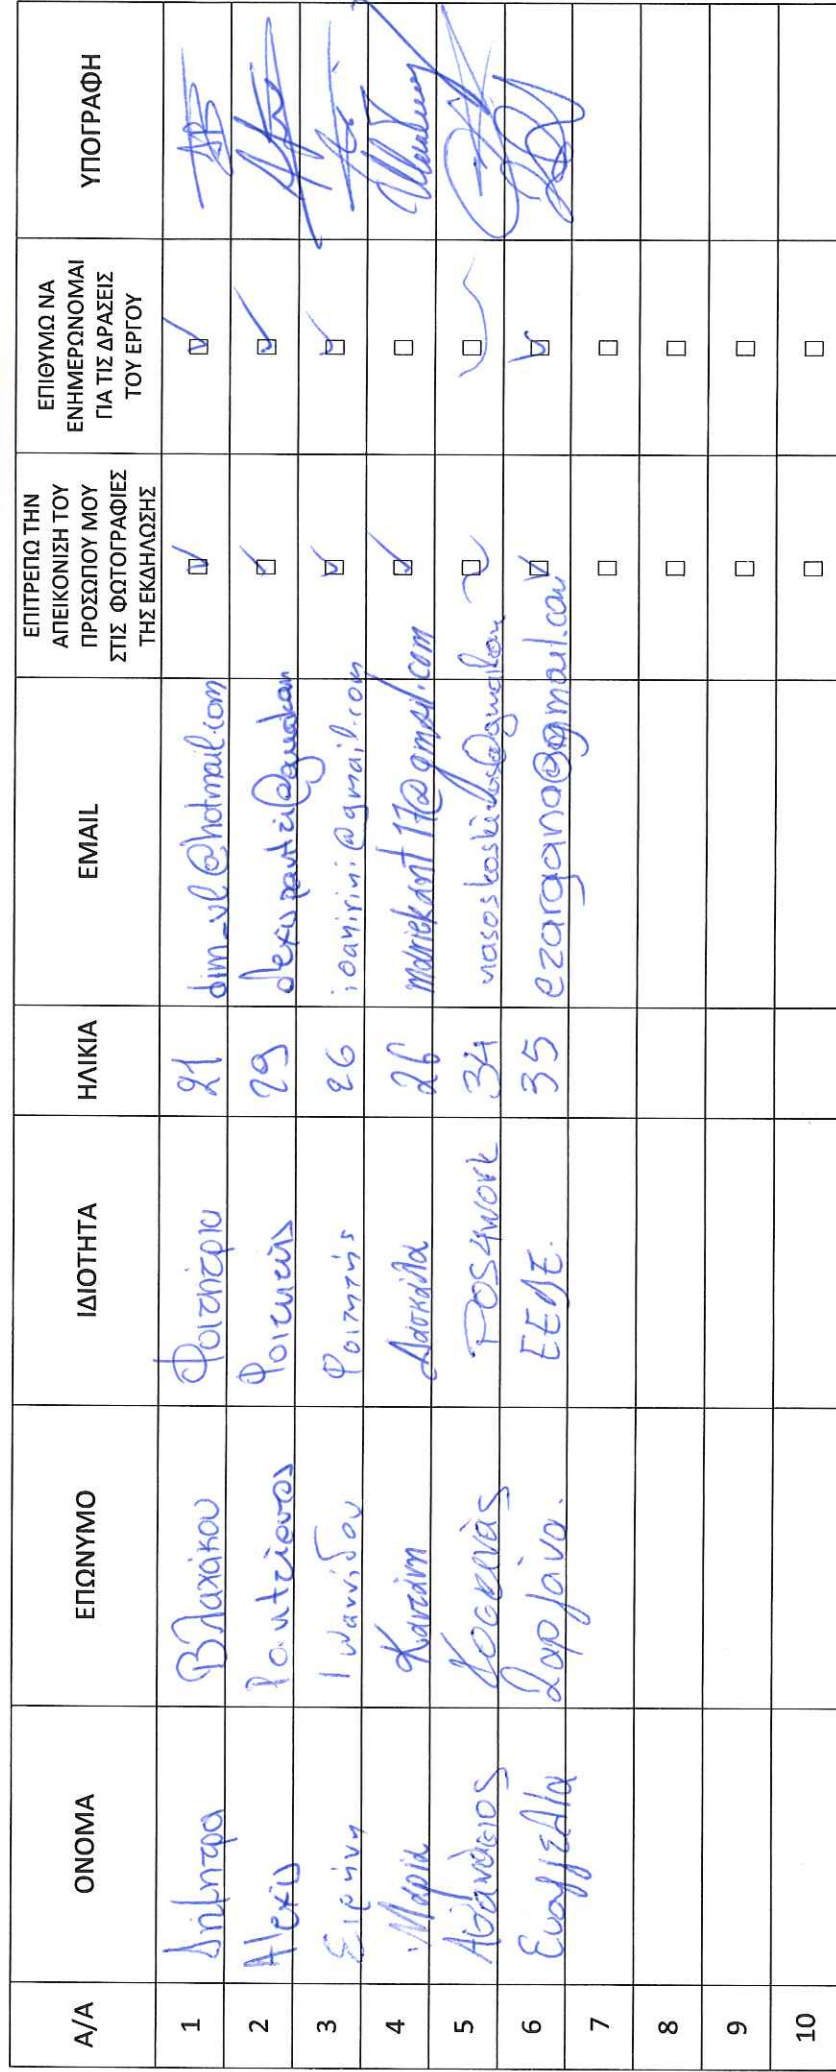 Α/Α ΟΝΟΜΑ ΕΠΩΝΥΜΟ ΙΔΙΟΤΗΤΑ ΗΛΙΚΙΑ EMAIL ΕΠΙΤΡΕΠΩ ΤΗΝ ΑΠΕΙΚΟΝΙΣΗ ΤΟΥ ΠΡΟΣΩΠΟΥ ΜΟΥ ΣΤΙΣ ΦΩΤΟΓΡΑΦΙΕΣ ΤΗΣ ΕΚΔΗΛΩΣΗΣ ΕΠΙΘΥΜΩ ΝΑ ΕΝΗΜΕΡΩΝΟΜΑΙ ΓΙΑ ΤΙΣ ΔΡΑΣΕΙΣ ΤΟΥ ΕΡΓΟΥ ΥΠΟΓΡΑΦΗ
1 Δήμητρα Βλαχάκου Φοιτήτρια 21 dim_vl@hotmail.com
2 Alexis Φοιτητής 29
3 Ειρήνη Ιωαννίδου Φοιτητής 26 ioanirini@gmail.com
4 Μαρία Καντάνη Δασκάλα 26 mariekant17@gmail.com
5 Αθανάσιος Κοσκινάς POS4WORK 34
6 Ευαγγελία Ζαργάνα. 35 ezargana@gmail.com
7
8
9
10